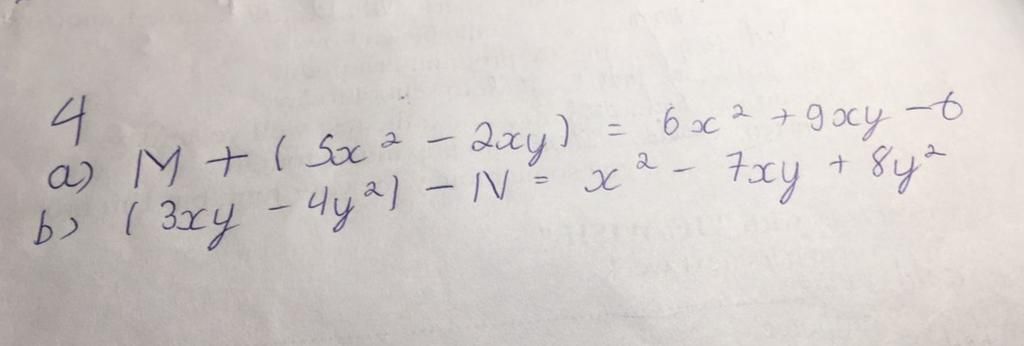 4
a) M + ( 5x² - 2xy) = 6x² + 9xy - 6
b) ( 3xy - 4y²) - N = x² - 7xy + 8y²